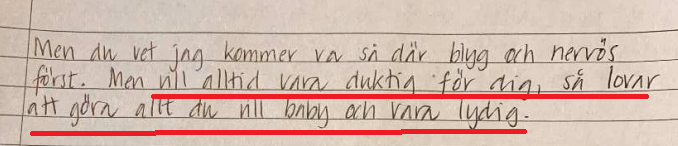 Men du vet jag kommer va så där blyg och nervös
först. Men vill alltid vara duktig för dig, så lovar
att göra allt du vill baby och vara lydig.